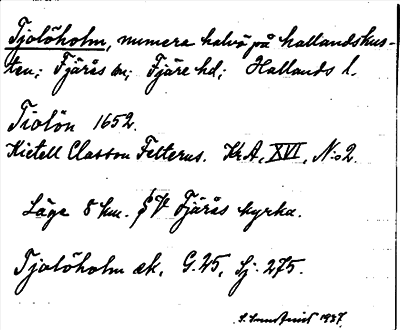 Tjolöholm, numera halvö på hallandskus-
ten; Fjärås sn; Fjäre hd; Hallands l.
Tiolön 1652.
Kietell Classon Felterus. KrA, XVI, N:o 2.
Läge 8 km. SV Fjärås kyrka.
Tjolöholm ek. G. 25, Sj. 275.
S. Lundqvist 1927.